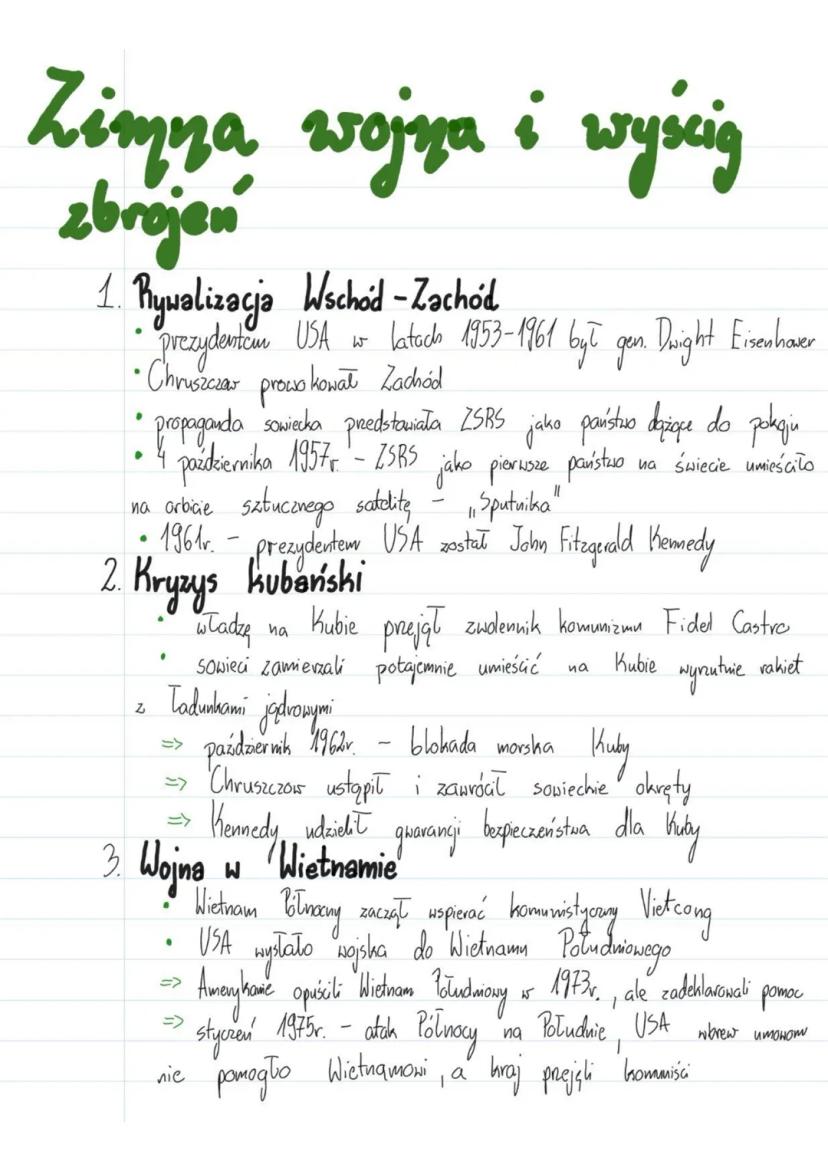 Zimna wojna i wyścig
zbrojeń
1. Rywalizacja Wschód - Zachód
• prezydentem USA w latach 1953-1961 był gen. Dwight Eisenhower
• Chruszczow prowokował Zachód
• propaganda sowiecka przedstawiała ZSRS jako państwo dążące do pokoju
• 4 października 1957r. - ZSRS jako pierwsze państwo na świecie umieściło
na orbicie sztucznego satelitę - „Sputnika"
• 1961r. - prezydentem USA został John Fitzgerald Kennedy
2. Kryzys kubański
• władzę na Kubie przejął zwolennik komunizmu Fidel Castro
• sowieci zamierzali potajemnie umieścić na Kubie wyrzutnie rakiet
z ładunkami jądrowymi
=> październik 1962r. - blokada morska Kuby
=> Chruszczow ustąpił i zawrócił sowieckie okręty
=> Kennedy udzielił gwarancji bezpieczeństwa dla Kuby
3. Wojna w Wietnamie
• Wietnam Północny zaczął wspierać komunistyczny Vietcong
• USA wysłało wojska do Wietnamu Południowego
=> Amerykanie opuścili Wietnam Południowy w 1973r., ale zadeklarowali pomoc
=> styczeń 1975r. - atak Północy na Południe, USA wbrew umowom
nie pomogło Wietnamowi, a kraj przejęli komuniści